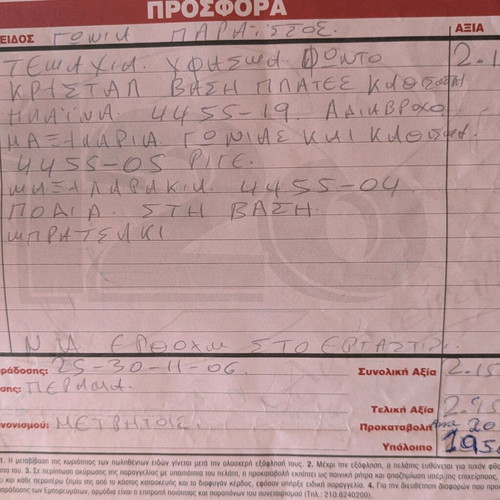 ΠΡΟΣΦΟΡΑ
ΕΙΔΟΣ ΓΩΝΙΑ ΠΑΡΑΙΣΤΟΣ. ΑΞΙΑ
ΤΕΜΑΧΙΑ. ΥΦΑΣΜΑ ΦΟΝΤΟ 2.1
ΚΡΙΣΤΑΛ ΒΑΣΗ ΠΛΑΤΕΣ
ΠΛΑΪΝΑ. 4455-19. ΑΔΙΑΒΡΟΧΟ
ΜΑΞΙΛΑΡΙΑ ΓΩΝΙΑΣ ΚΑΙ
4455-05 ΡΙΓΕ.
ΜΑΞΙΛΑΡΑΚΙΑ 4455-04
ΠΟΔΙΑ. ΣΤΗ ΒΑΣΗ.
ΜΠΡΑΤΣΑΚΙ
ΝΑ ΕΡΘΟΥΝ ΣΤΟ
ράδοσης: 25-30-11-06. Συνολική Αξία 2.15
σης: ΠΕΡΑΜΑ. Τελική Αξία
ονισμού: ΜΕΤΡΗΤΟΙΣ Προκαταβολή 20
Υπόλοιπο 195
1. Η μεταβίβαση της κυριότητας των πωληθέντων ειδών γίνεται μετά την ολοσχερή εξόφλησή τους. 2. Μέχρι την εξόφληση, ο πελάτης ευθύνεται για τυχόν
στα του. 3. Σε περίπτωση ακύρωσης της παραγγελίας με υπαιτιότητα του πελάτη, η προκαταβολή εκπίπτει ως ποινική ρήτρα και
αι κάθε περαιτέρω ζημία της από το κόστος κατασκευής και το διαφυγόν κέρδος, εφόσον υπήρξε ειδική παραγγελία. 4. Για την διευθέτηση διαφορών που
δόσεων του Εμπορευμάτων, αρμόδια είναι η επιτροπή ποιότητας και παραπόνων του συνεταιρισμού (Τηλ.: 210.6240200).